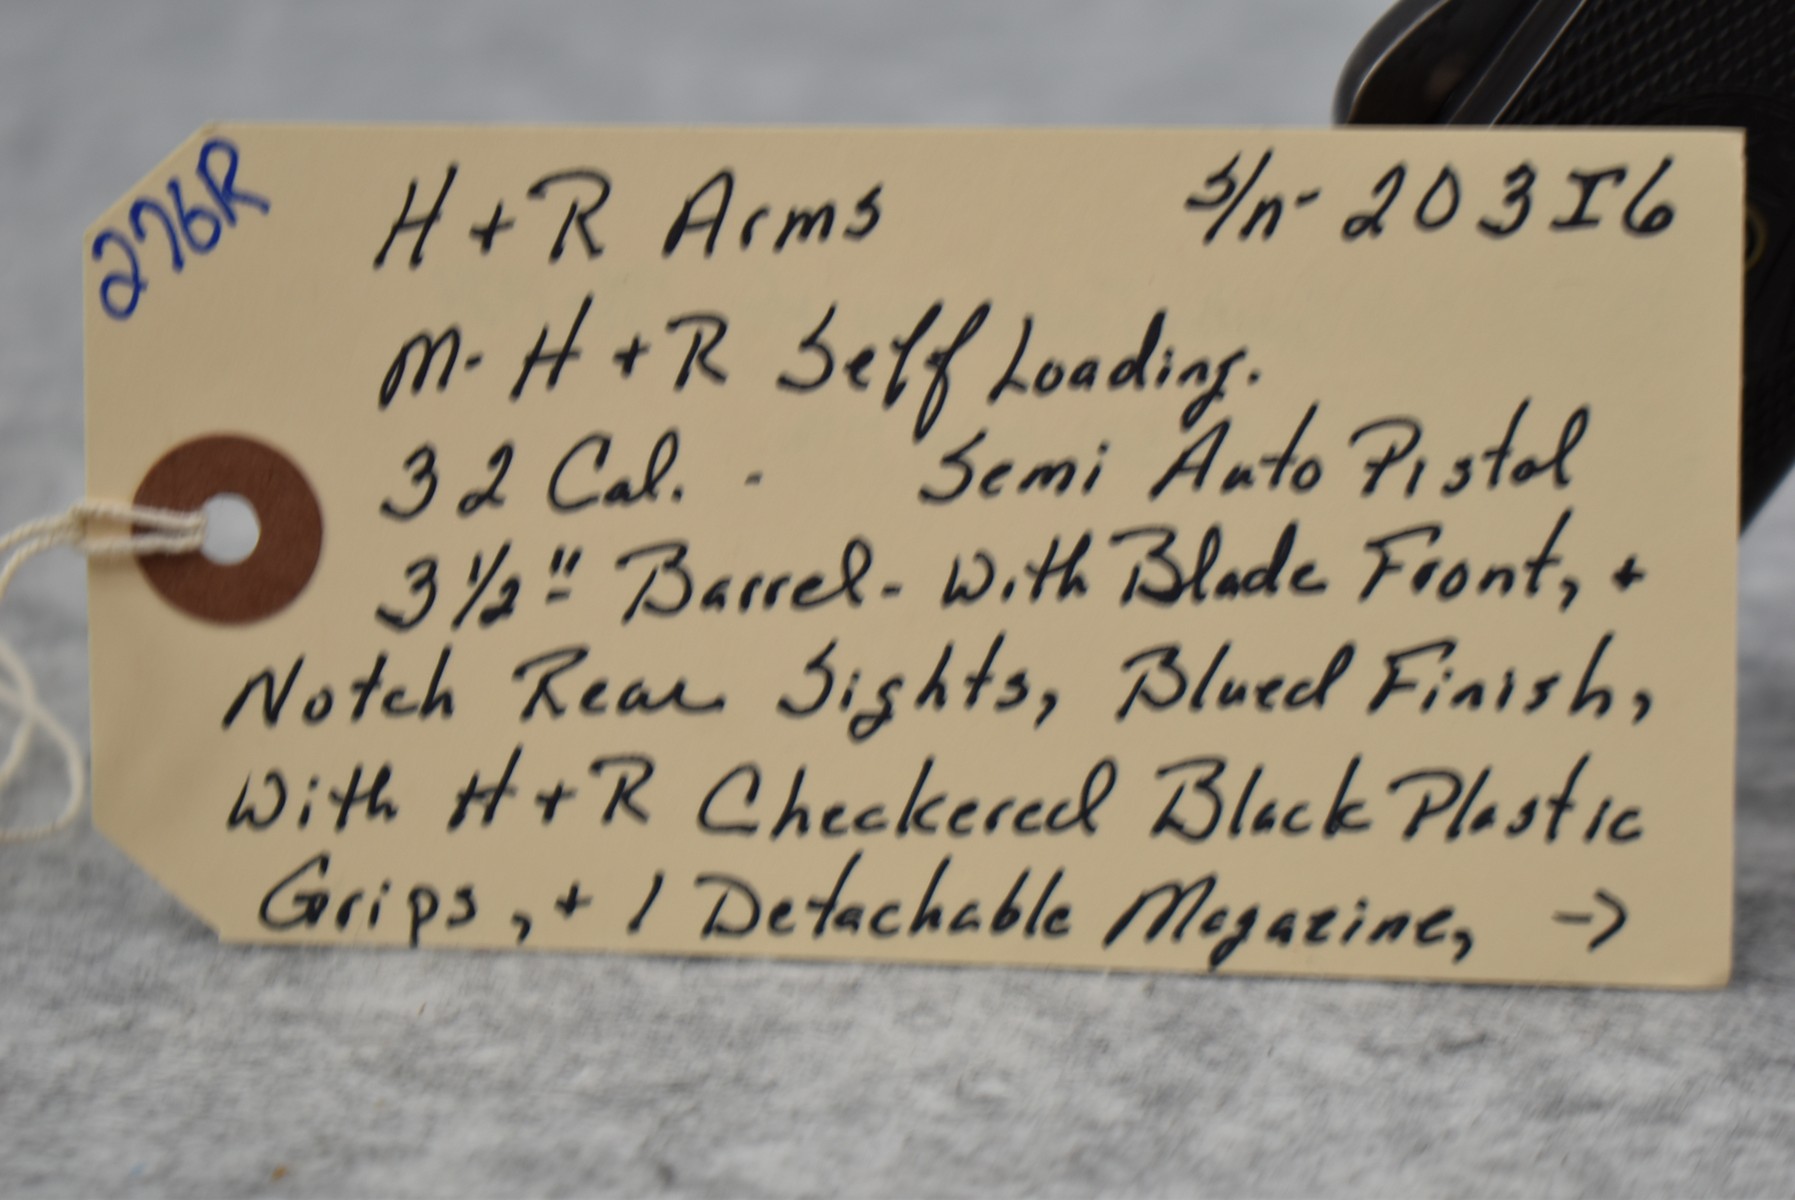 276R
H + R Arms S/n- 203I6
M- H + R Self Loading.
32 Cal. - Semi Auto Pistol
3 1/2" Barrel - With Blade Front, +
Notch Rear Sights, Blued Finish,
With H + R Checkered Black Plastic
Grips, + 1 Detachable Magazine, ->